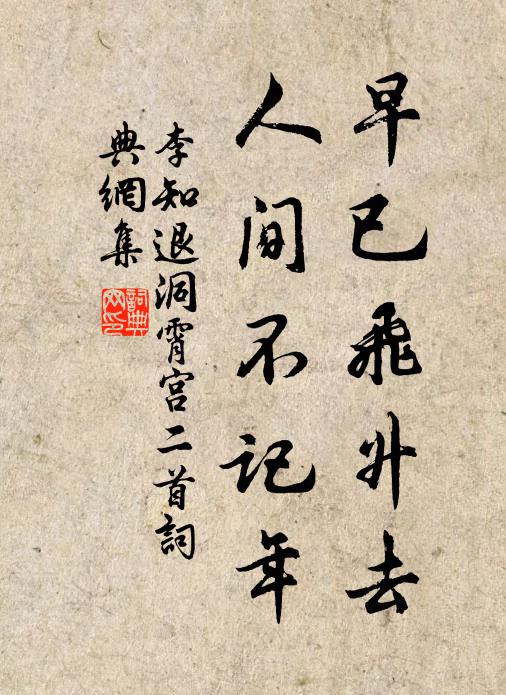 早已飛升去
人間不記年
李知退洞霄宮二首詞
典網集
詞典
网印